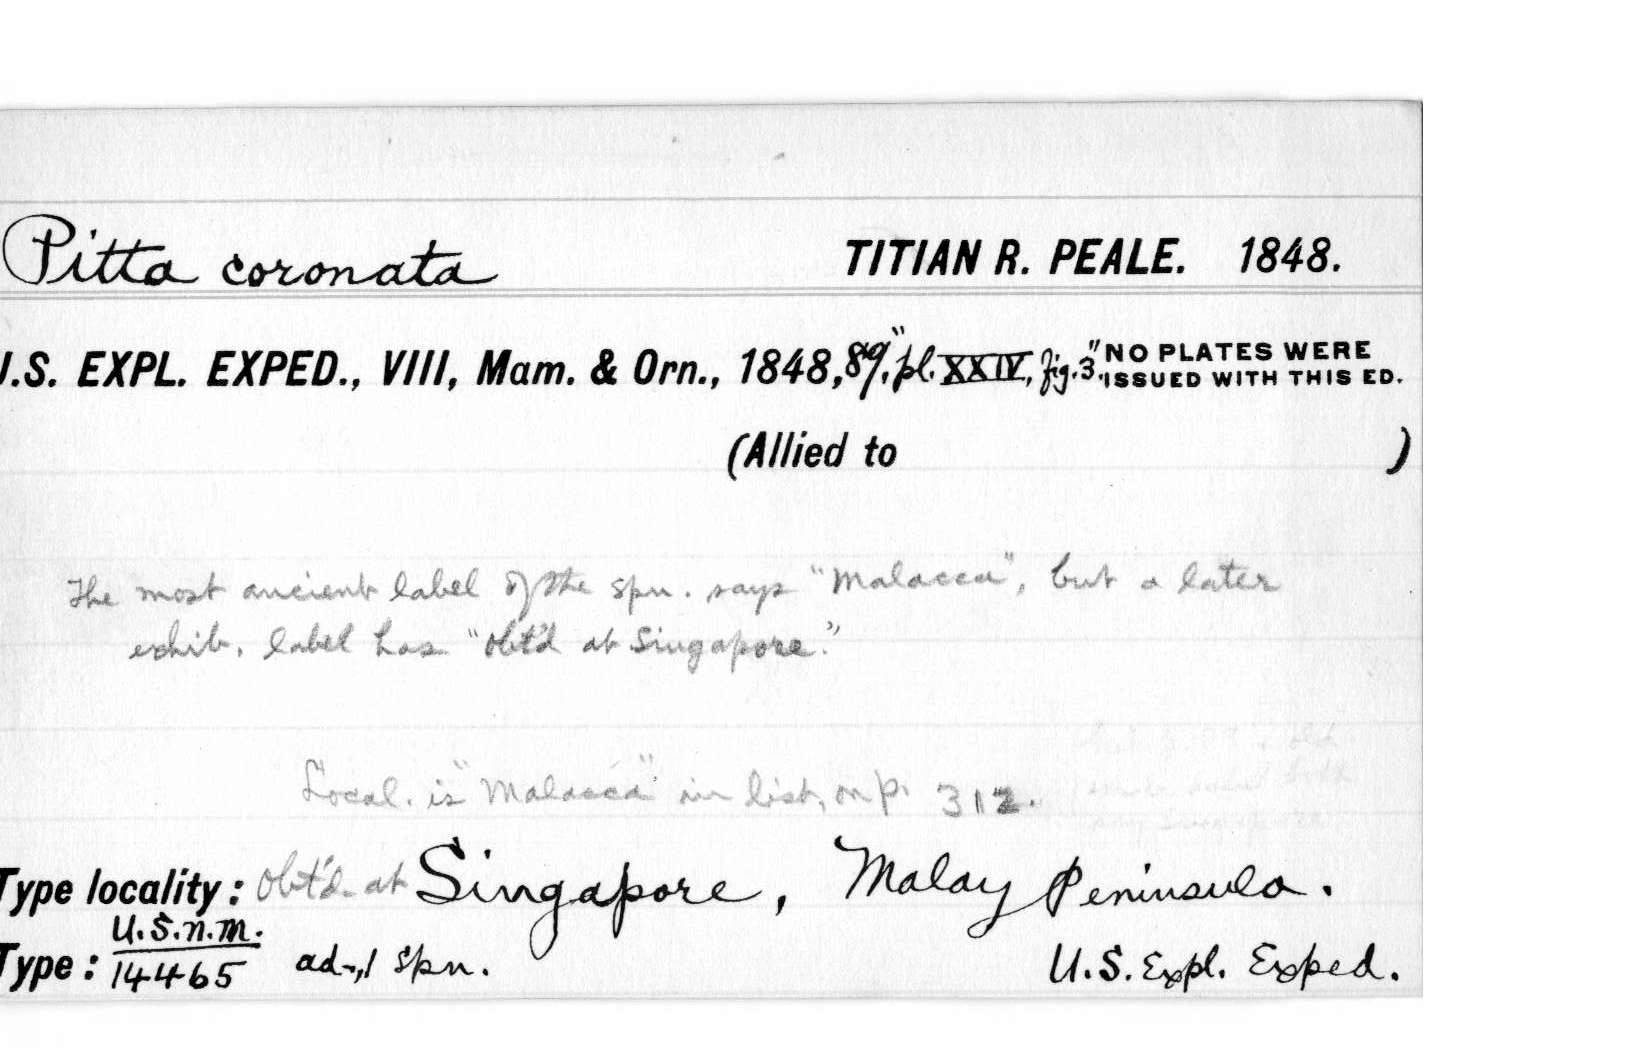 Pitta coronata TITIAN R. PEALE. 1848.
U.S. EXPL. EXPED., VIII, Mam. & Orn., 1848, 89, "pl. XXIV, fig. 3." NO PLATES WERE ISSUED WITH THIS ED.
(Allied to )
The most ancient label of the spn. says "Malacca", but a later
exhib. label has "obt'd at Singapore."
old
Local. is "Malacca" in list, on p. 312.
Type locality: obt'd. at Singapore, Malay Peninsula.
Type: U.S.N.M. 14465 ad., 1 spn. U.S. Expl. Exped.